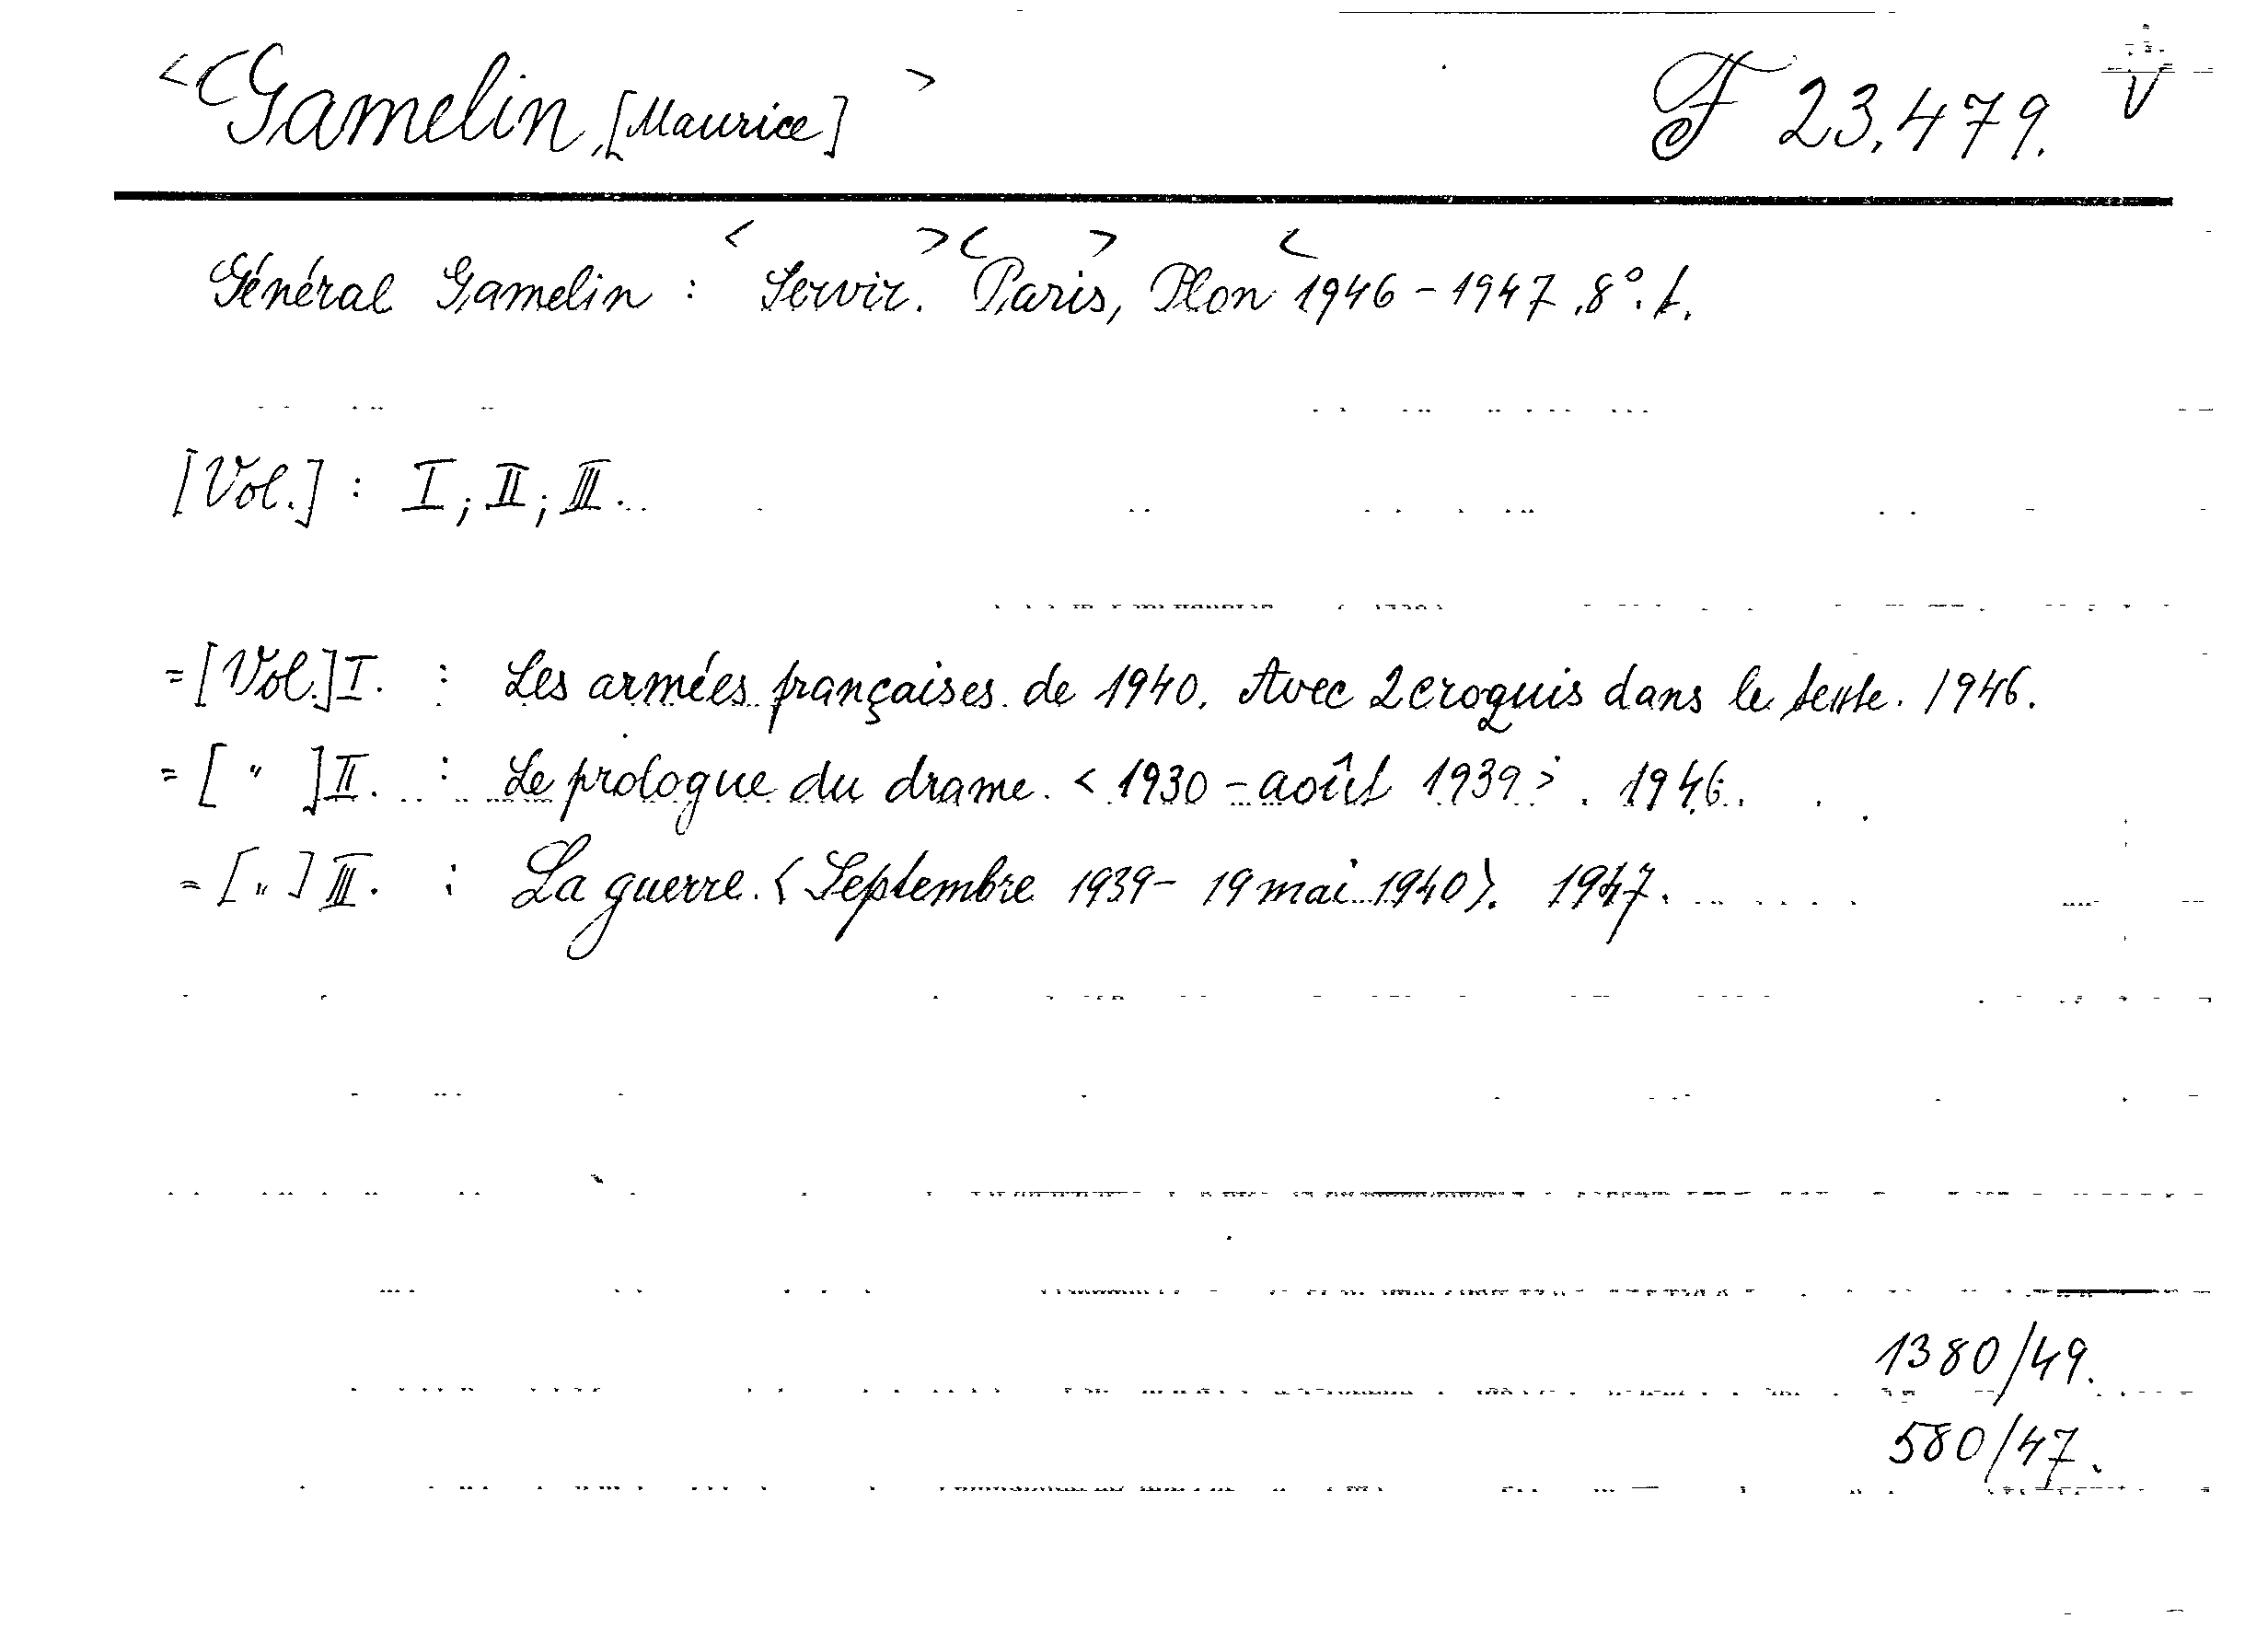 <Gamelin, [Maurice]> F 23.479. V
Général Gamelin : <Servir.> <Paris,> Plon <1946-1947. 8°. f.
[Vol.] : I; II; III.
=[Vol.] I. : Les armées françaises de 1940. Avec 2 croquis dans le texte. 1946.
=[ " ] II. : Le prologue du drame. <1930 - août 1939>. 1946.
=[ " ] III. : La guerre. <Septembre 1939 - 19 mai 1940>. 1947.
1380/49.
580/47.